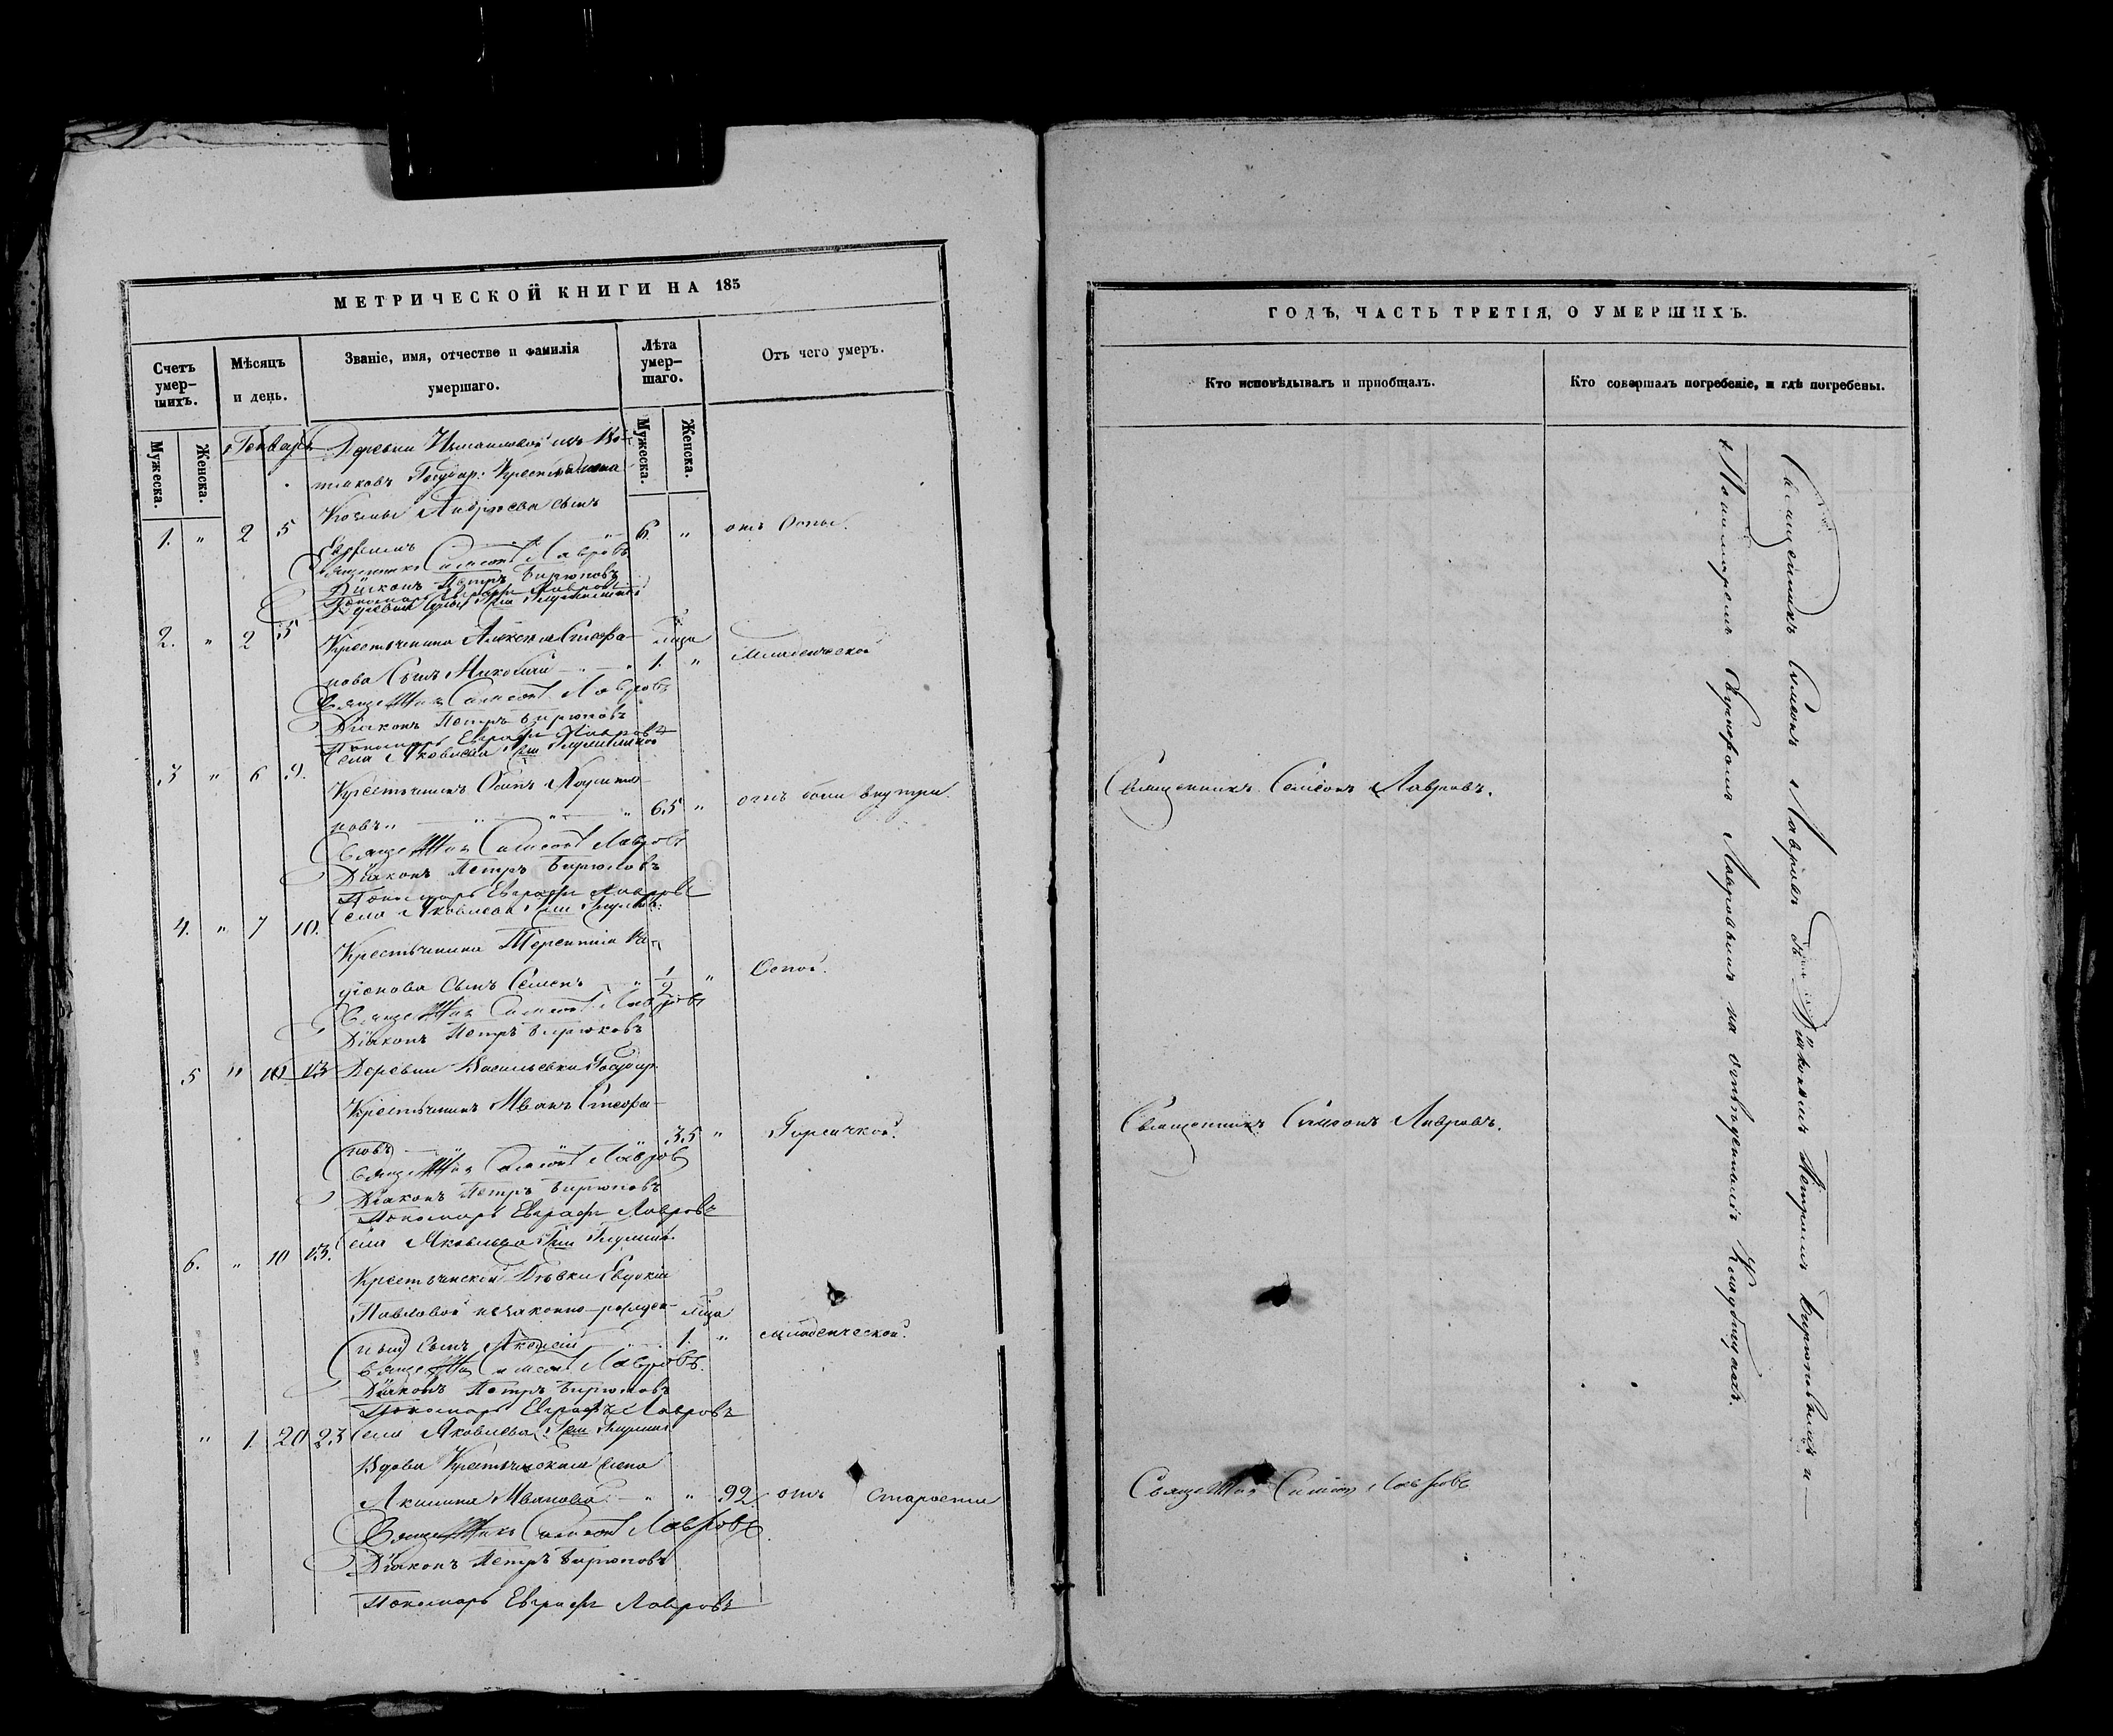 МЕТРИЧЕСКОЙ КНИГИ НА 185
Счетъ умер-шихъ.
Мѣсяцъ и день.
Званіе, имя, отчество и фамилія умершаго.
Лѣта умер-шаго.
Отъ чего умеръ.
Мужеска.
Женска.
Мужеска.
Женска.
Генварь
Деревни
Государ: Крестьянина
Козмы Андреева сынъ
1. " 2 5 Ефремъ 6. " отъ Оспы.
Священникъ Симеонъ Лавровъ
Діаконъ Петръ Бирюковъ
Пономарь Евграфъ Лавровъ
2. " 2 5
Крестьянина Алексѣя Стефа-
нова Сынъ Николай 1. " Младенческой
Священникъ Симеонъ Лавровъ
Діаконъ Петръ Бирюковъ
Пономарь Евграфъ Лавровъ
3 " 6 9. Села Яковлева
Крестьянинъ Осипъ
новъ " 65 " отъ боли внутри.
Священникъ Симеонъ Лавровъ
Діаконъ Петръ Бирюковъ
Пономарь Евграфъ Лавровъ
4. " 7 10. Села Яковлева
Крестьянина Терентія Ла-
ріонова Сынъ Семенъ 1/2 " Оспой.
Священникъ Симеонъ Лавровъ
Діаконъ Петръ Бирюковъ
5 " 10 13 Деревни Васильевки Государ.
Крестьянинъ Иванъ Стефа-
новъ 35 " Горячкой.
Священникъ Симеонъ Лавровъ
Діаконъ Петръ Бирюковъ
Пономарь Евграфъ Лавровъ
6. " 10 13. Села Яковлева
Крестьянской Дѣвки Евдокіи
Павловой незаконно-рожден-
ный Сынъ Алексѣй 1. " младенческой.
Священникъ Симеонъ Лавровъ.
Діаконъ Петръ Бирюковъ
Пономарь Евграфъ Лавровъ
" 1. 20 23 Села Яковлева
Вдова Крестьянская жена
Акилина Иванова " " 92 отъ Старости
Священникъ Симеонъ Лавровъ
Діаконъ Петръ Бирюковъ
Пономарь Евграфъ Лавровъ
ГОДЪ, ЧАСТЬ ТРЕТІЯ, О УМЕРШИХЪ.
Кто исповѣдывалъ и приобщалъ.
Кто совершалъ погребеніе, и гдѣ погребены.
Священникъ Симеонъ Лавровъ.
Священникъ Симеонъ Лавровъ.
Священникъ Симеонъ Лавровъ
Священникъ Симеонъ Лавровъ съ Діакономъ Петромъ Бирюковымъ и
Пономаремъ Евграфомъ Лавровымъ на отведенномъ Кладбищахъ.